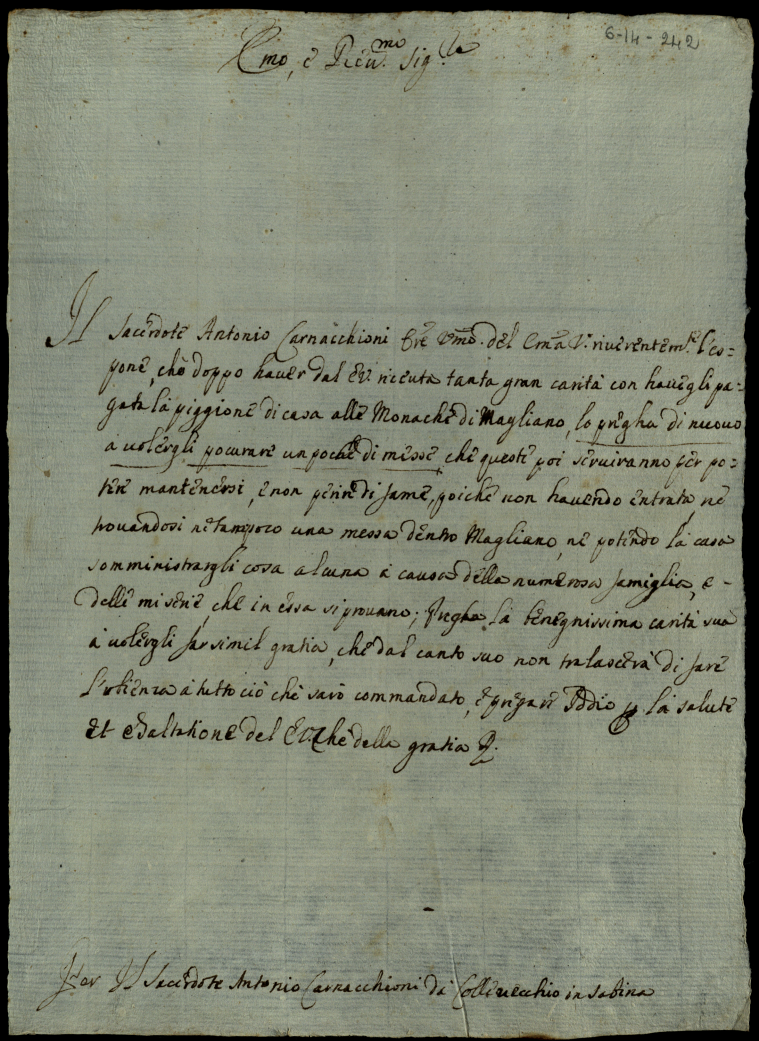 6-14-242
Emo, e Reumo. Sigre
Il Sacerdote Antonio Carnacchioni Ore Vmo. del Em̃a V. riuerentemte. l'es=
pone, che doppo hauer dal E.V. riceuta tanta gran carità con hauegli pa=
gata la piggione di casa alle Monache di Magliano, lo pregha di nuouo
à uolergli pocurare un poche di messe, che queste poi seruiranno per po=
tere mantenersi, e non perire di fame, poiche non hauendo entrata, ne
trouandosi ne tampoco una messa dentro Magliano, ne potendo la casa
somministrargli cosa alcuna à causa della numerosa famiglia, e
delle miserie, che in essa si prouano; Pregha la benegnissima carità sua
à uolergli far simil gratia, che dal canto suo non tralascerà di fare
l'obienza à tutto ciò che sarò commandato, e pregare Iddio p la salute
et esaltatione del E.V. Che della gratia &.
Per Il Sacerdote Antonio Carnacchioni da Colleuecchio in Sabina